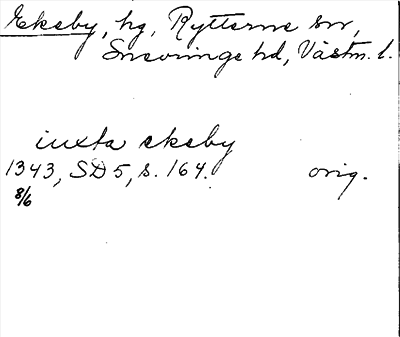 Ekeby, hg, Rytterne sn,
Snevringe hd, Västm. l.
iuxta ekeby
1343, SD 5, s. 164. orig.
8/6